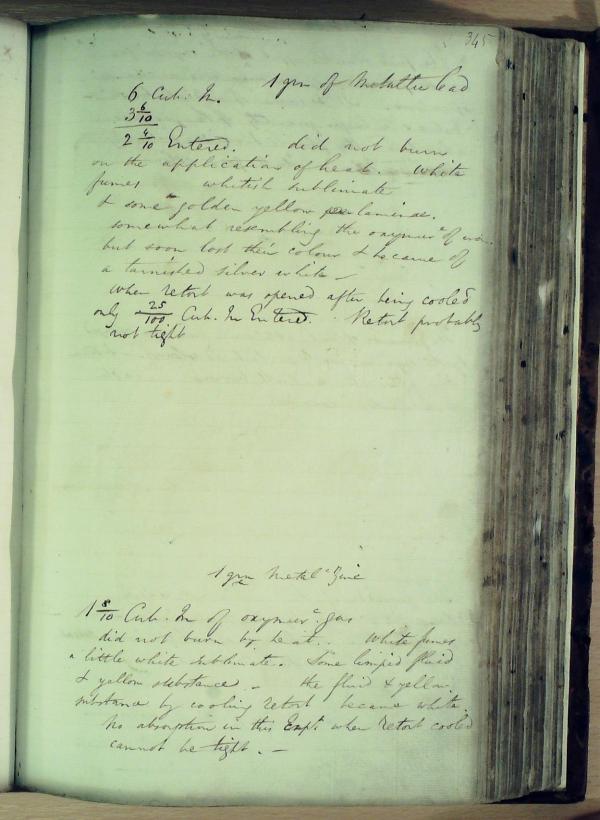 345
1 grn of Metallic Lead
6 Cub. In.
3 6/10
2 4/10 Entered. did not burn
on the application of heat. White
fumes whitish sublimate
& some golden yellow laminae.
somewhat resembling the oxymur.c of iron
but soon lost their colour & became of
a tarnished silver white —
When retort was opened after being cooled
only 25/100 Cub. In Entered. Retort probably
not tight
1 grn Metal.c Zinc
1 8/10 Cub. In of oxymur.c gas
did not burn by heat. White fumes
a little white sublimate. Some limpid fluid
& yellow substance. – the fluid & yellow
substance by cooling retort became white.
No absorption in this Expt. when retort cooled
cannot be tight. —